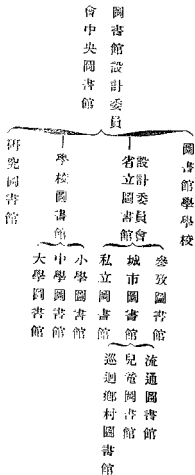 圖書館設計委員
會中央圖書館
圖書館學學校
設計委員會
省立圖書館
學校圖書館
研究圖書館
參攷圖書館
城市圖書館
私立圖書館
小學圖書館
中學圖書館
大學圖書館
流通圖書館
兒童圖書館
巡迴鄉村圖書館